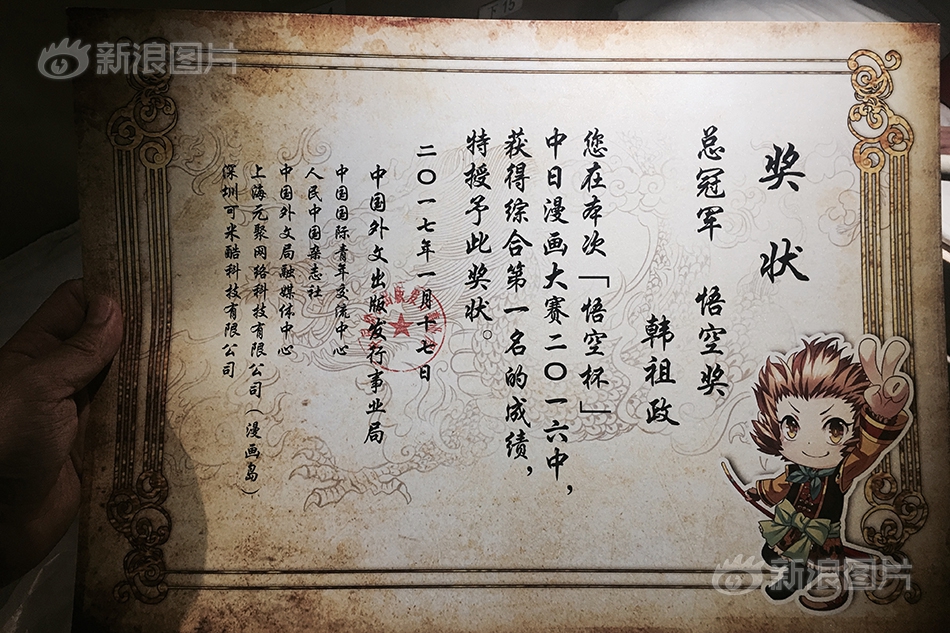 奖状
总冠军 悟空奖
韩祖政
您在本次「悟空杯」
中日漫画大赛二〇一六中，
获得综合第一名的成绩，
特授予此奖状。
二〇一七年一月十七日
中国外文出版发行事业局
中国国际青年交流中心
人民中国杂志社
中国外文局融媒体中心
上海元聚网络科技有限公司（漫画岛）
深圳可米酷科技有限公司
新浪图片
新浪图片